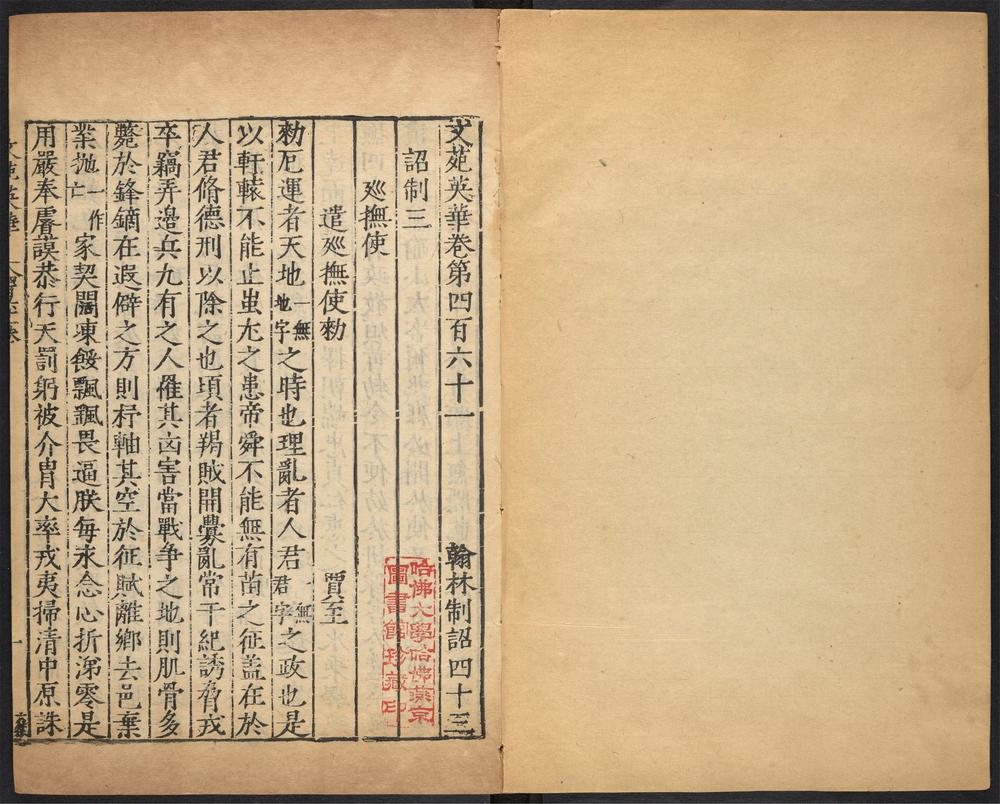 文苑英華卷第四百六十一　翰林制詔四十三
詔制三
廵撫使
遣廵撫使勑　賈至
勑厄運者天地一無地字之時也理亂者人君一無君字之政也是
以軒轅不能止蚩尤之患帝舜不能無有苗之征盖在於
人君脩德刑以除之也頃者羯賊開釁亂常干紀誘脅戎
卒竊弄邊兵九有之人罹其凶害當戰争之地則肌骨多
斃於鋒鏑在遐僻之方則杼軸其空於征賦離鄉去邑棄
業抛一作亡家契闊凍餒飄颻畏逼朕每永念心折涕零是
用嚴奉庿謨恭行天罰躬被介胄大率戎夷掃清中原誅
一
哈佛大學哈佛燕京
圖書館珍藏印